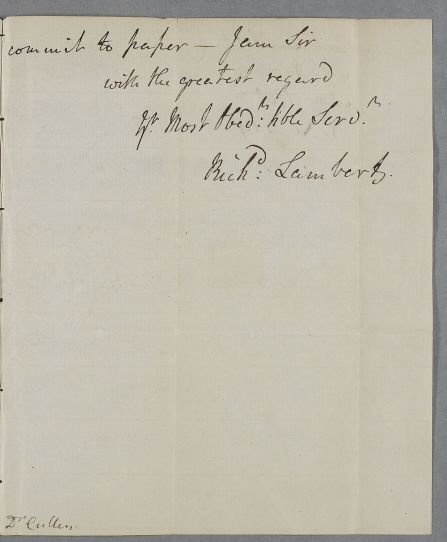 commit to paper — I am Sir
with the greatest regard
Yr. Most Obed:t hble Serv.t
Rich:d Lambert.
Dr Cullen.